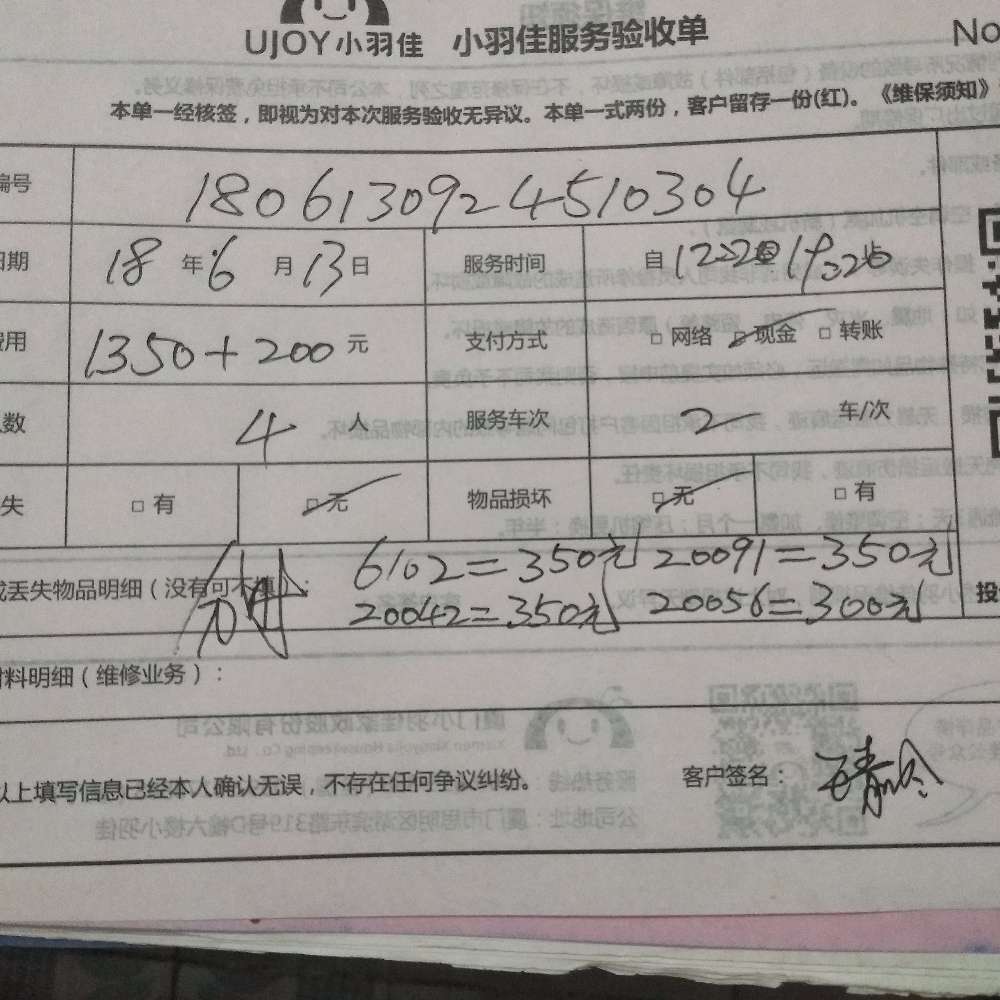 UJOY小羽佳 小羽佳服务验收单 No
本单一经核签，即视为对本次服务验收无异议。本单一式两份，客户留存一份(红)。《维保须知》
编号 1806130924510304
日期 18 年 6 月 13 日 服务时间 自
费用 1350+200 元 支付方式 □ 网络 □ 现金 □ 转账
人数 4 人 服务车次 2 车/次
失 □ 有 □ 无 物品损坏 □ 无 □ 有
6102=350元 20091=350元
或丢失物品明细（没有可不填）： 20042=350元 20056=300元
投
材料明细（维修业务）：
以上填写信息已经本人确认无误，不存在任何争议纠纷。 客户签名：